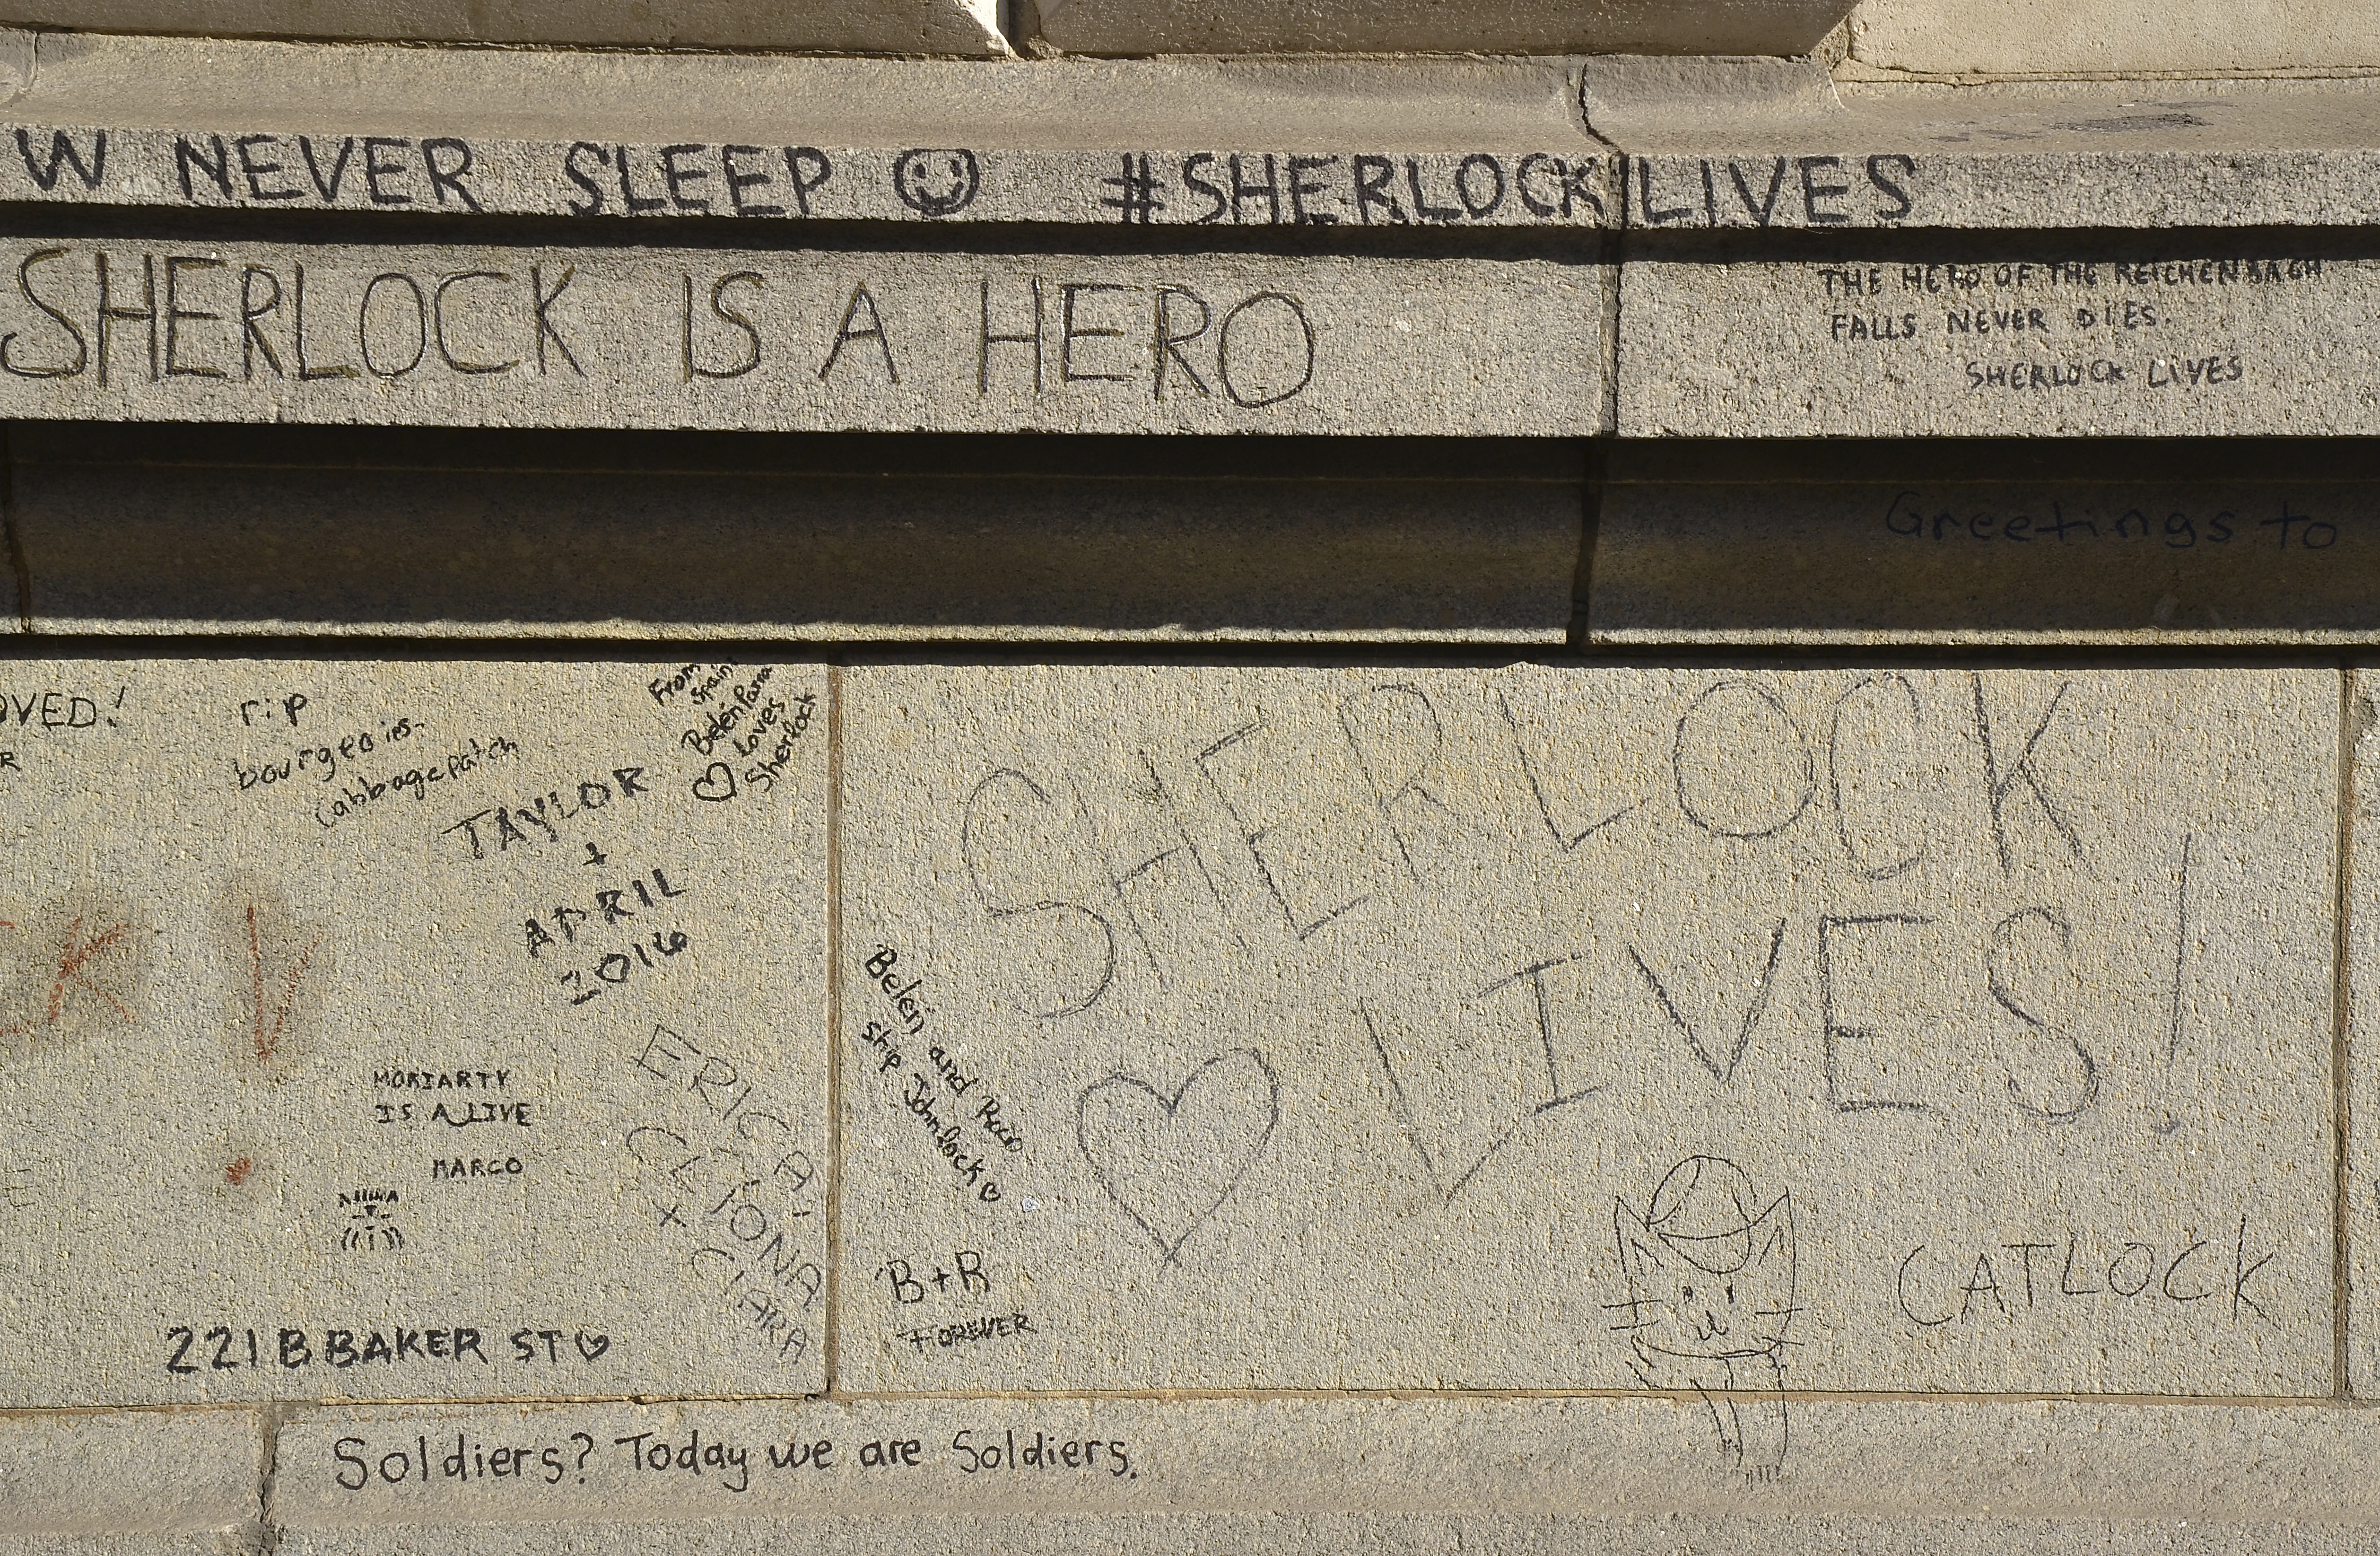 W NEVER SLEEP #SHERLOCK LIVES
SHERLOCK IS A HERO
THE HERO OF THE REICHENBACH
FALLS NEVER DIES.
SHERLOCK LIVES
Greetings to
OVED!
R
rip
bourgeois-
cabbagepatch
From
Spain
Belén Parra
loves
Sherlock
TAYLOR
+
APRIL
2016
CK V
MORIARTY
IS ALIVE
MARCO
ERICA
CLÍONA
x CIARA
221B BAKER ST
SHERLOCK
LIVES!
Belén and Rocío
ship Johnlock
B+R
FOREVER
CATLOCK
Soldiers? Today we are Soldiers.